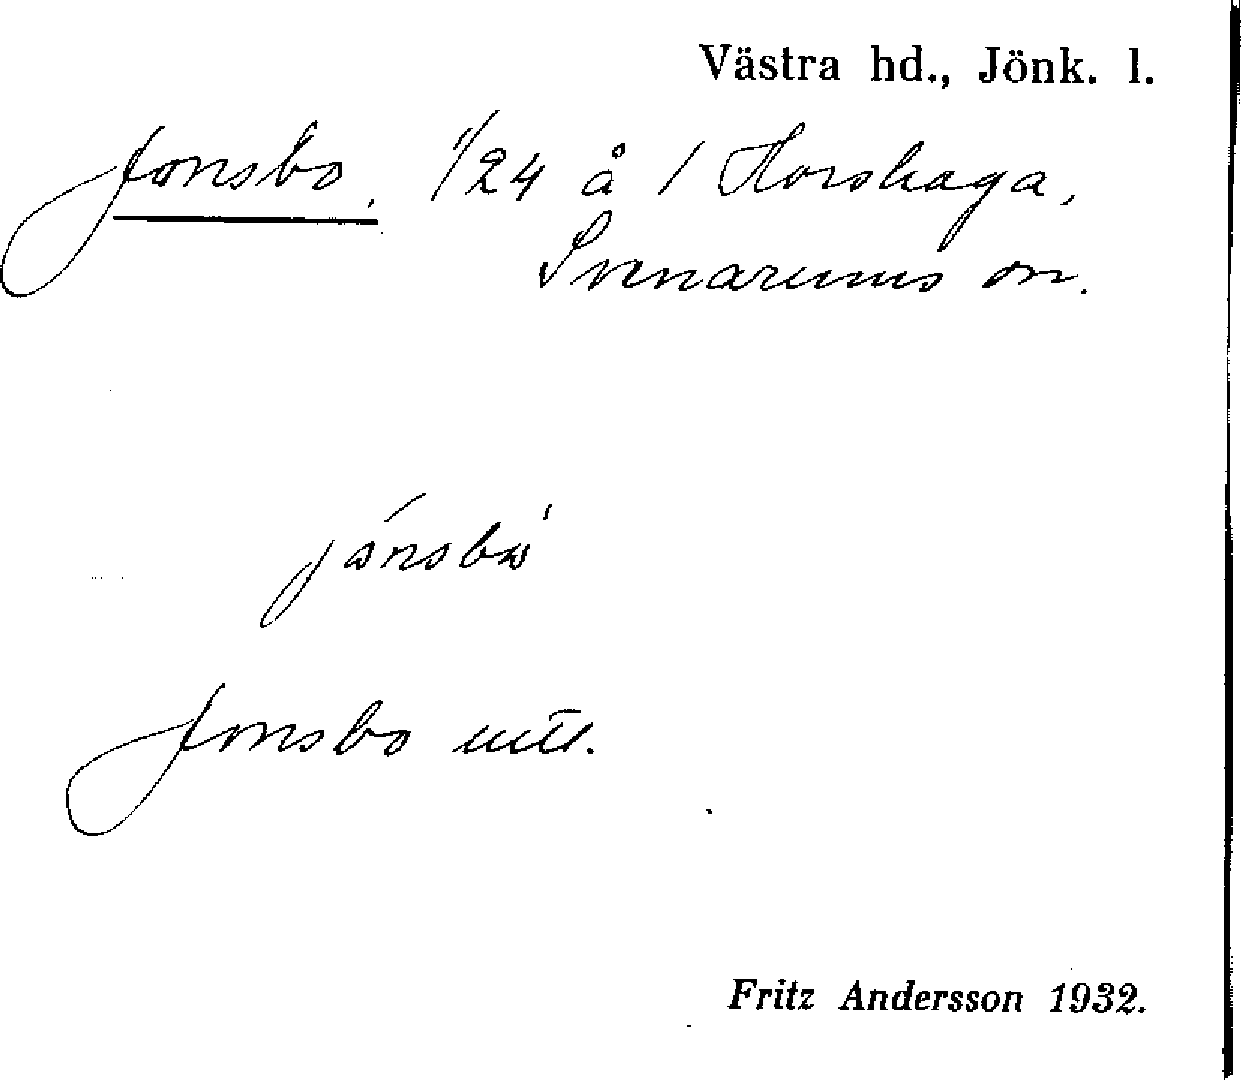 Västra hd., Jönk. l.
Jonsbo, 1/24 å 1 Horshaga,
Svenarums sn.
jónsbω'
Jonsbo utt.
Fritz Andersson 1932.